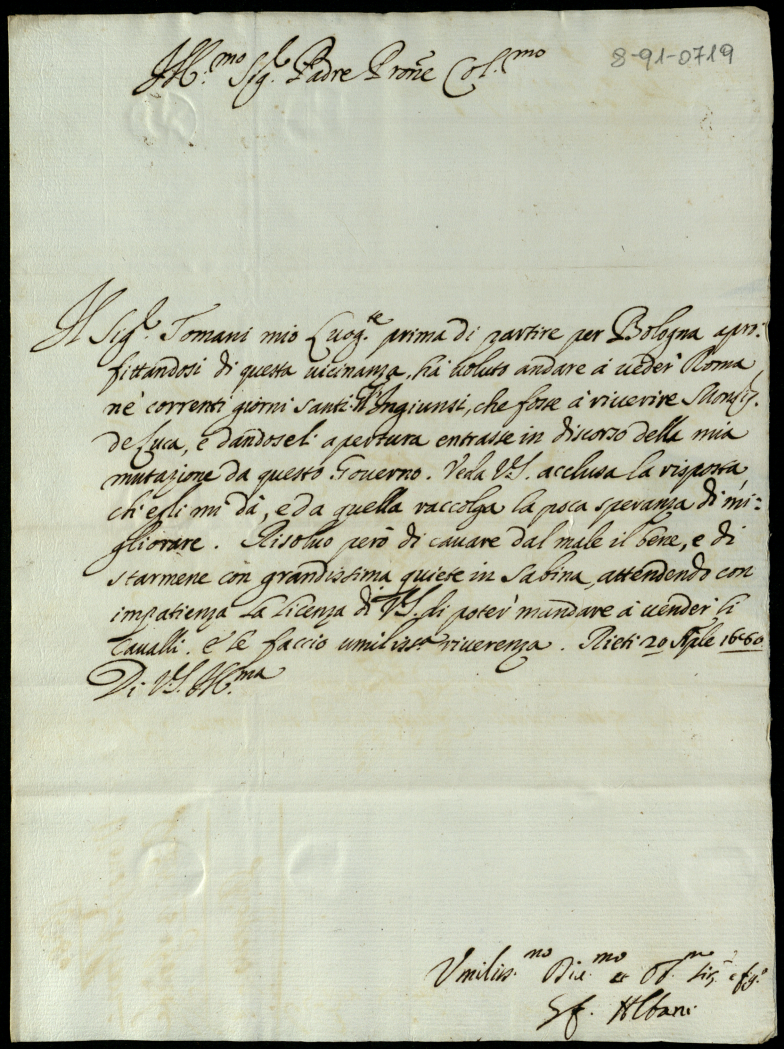 8-91-0719
Ill.mo Sig.r Padre Prone Col.mo
Il Sig.r Tomani mio Luog.te prima di partire per Bologna apro:
fittandosi di questa vicinanza, hà voluto andare à veder' Roma
nè correnti giorni santi. Gl'Ingiunsi, che fosse à riverire Monsig.r
de Luca, e dandoseli apertura entrasse in discorso della mia
mutazione da questo Governo. Veda V.S. acclusa la risposta,
ch'egli mi dà, e da quella raccolga la poca speranza di mi:
gliorare. Risoluo però di cauare dal male il bene, e di
starmene con grandissima quiete in Sabina, attendendo con
impatienza la licenza di V.S. di poter' mandare à vender' li
Caualli. e le faccio umiliss.a riuerenza. Rieti 20 Aple 1660
Di V.S. Ill.ma
Umiliss.mo Diu.mo et Obl.mo e fig.o
Gf. Albani